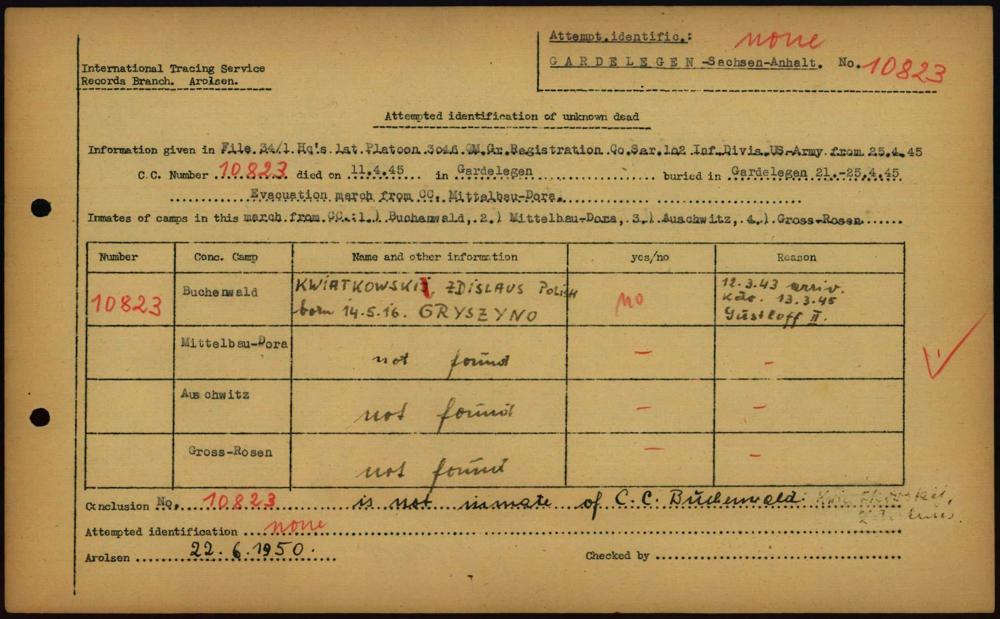 Attempt.identific.: none
International Tracing Service
GARDELEGEN -Sachsen-Anhalt. No. 10823
Records Branch. Arolsen.
Attempted identification of unknown dead
Information given in File 34/1 Hq's 1at Platoon 3046 QM.Gr.Registration Co.Sar.102 Inf.Divis.US-Army from 25.4.45
C.C. Number 10823 died on 11.4.45 in Gardelegen buried in Gardelegen 21.-25.4.45
Evacuation march from CC. Mittelbau-Dora.
Inmates of camps in this march from CC.:1.) Buchenwald, 2.) Mittelbau-Dora, 3.) Auschwitz, 4.) Gross-Rosen
Number Conc. Camp Name and other information yes/no Reason
10823 Buchenwald KWIATKOWSKI, ZDISLAUS POLISH no 12.3.43 arriv.
born 14.5.16. GRYSZYNO Kdo. 13.3.45
Gustloff II.
Mittelbau-Dora not found – –
Auschwitz not found – –
Gross-Rosen not found – –
Conclusion No. 10823 is not inmate of C.C. Buchenwald:
Attempted identification none
Arolsen 22.6.1950. Checked by